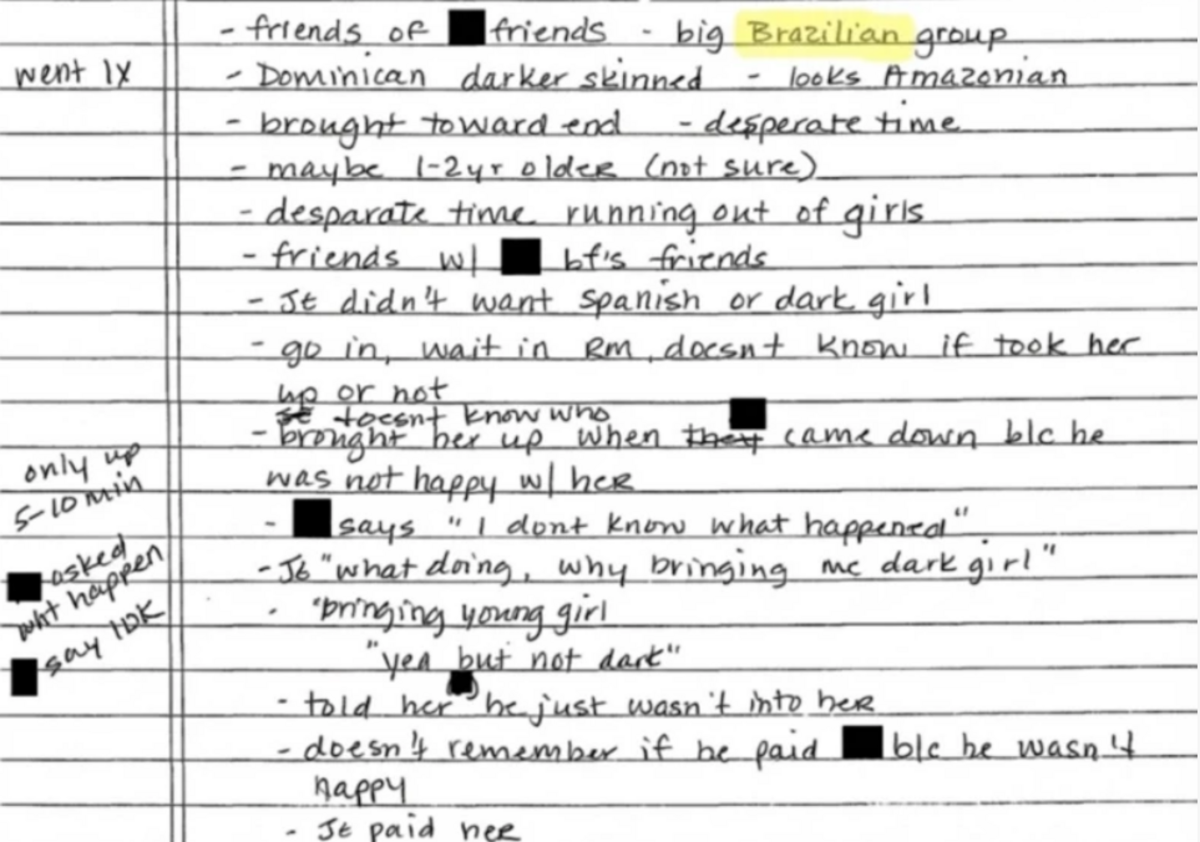 - friends of friends - big Brazilian group
went 1x
- Dominican darker skinned - looks Amazonian
- brought toward end - desperate time
- maybe 1-2yr older (not sure)
- desparate time running out of girls
- friends w/ bf's friends
- JE didn't want spanish or dark girl
- go in, wait in Rm, doesnt know if took her
up or not
JE doesnt know who
- brought her up when they came down b/c he
was not happy w/ her
only up
5-10 min
- says "I dont know what happened"
- JE "what doing, why bringing me dark girl"
asked
wht happen
say IDK
- "bringing young girl
"yea but not dark"
- told her he just wasn't into her
- doesn't remember if he paid b/c he wasn't
happy
- JE paid her